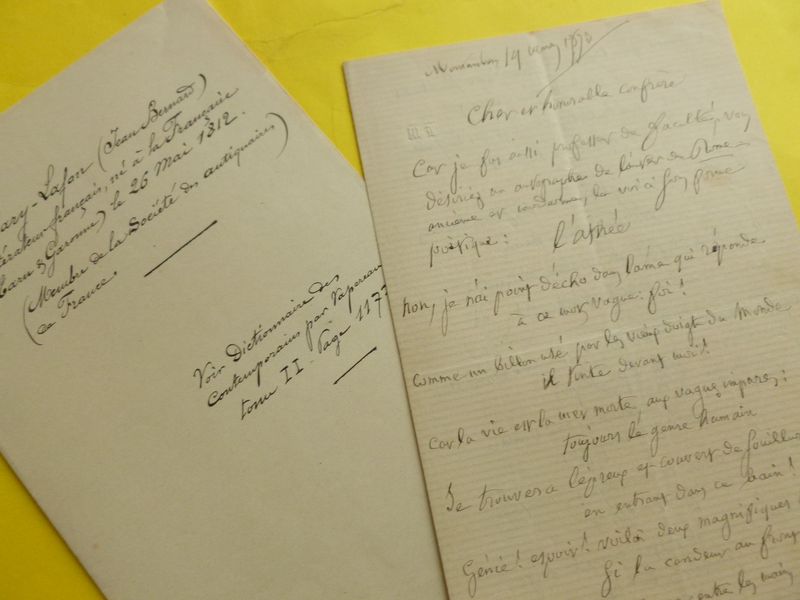 ary-Lafon (Jean Bernard)
térateur français, né à la Française
arn & Garonne) le 26 Mai 1812.
(Membre de la Société des antiquaires)
de France.
Voir Dictionnaire des
Contemporains par Vapereau
tome II - Page 1177
Montauban 19 1873
Cher et honorable confrère
Car je fus aussi professeur de faculté, vous
désirez un autographe de l'auteur de Rome
ancienne et moderne, la voici à forme
poétique :
L'athée
Non, je n'ai point d'écho dans l'âme qui réponde
à ce mot vague : foi !
Comme un billon usé par les vieux doigts du Monde
il tinte devant moi !
Car la vie est la mer morte, aux vagues impures ;
toujours le genre humain
Se trouvera lépreux et couvert de souillures
en entrant dans ce bain !
Génie ! espoir ! voilà deux magnifiques
Si la candeur au front
entre les mains